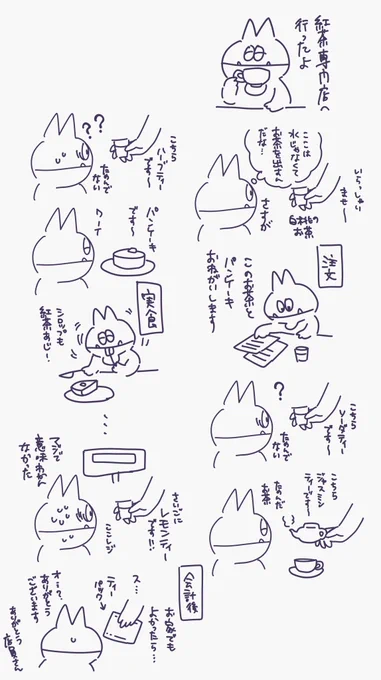 紅茶専門店へ
行ってよ
いらっしゃい
ませ〜
ここは
水じゃなくて
お茶を出すん
だな…
さすが
白桃の
お茶
注文
このお茶と
パンケーキ
おねがいします
こちら
ソーダティー
です〜
?
たのんで
ない
こちら
ジャスミン
ティーです〜
たのんだ
お茶
こちら
ハーブティー
です〜
??
たのんで
ない
パンケーキ
です〜
ワーイ
実食
シロップも
紅茶あじ!
...
さいごに
レモンティー
です!!
ここレジ
マジで
意味わかん
なかった
会計後
お家でも
よかったら…
ス…
ティー
パック
オ…?
ありがとう
ございます
ありがとう
店員さん